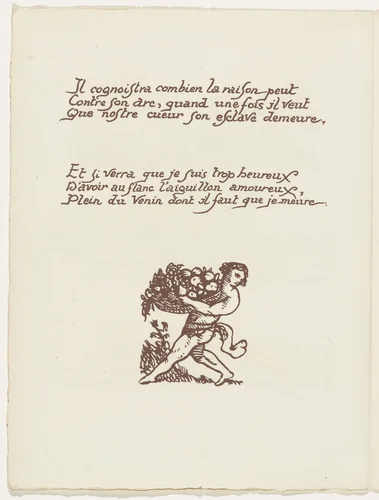 Il cognoistra combien la raison peut
Contre son arc, quand une fois il veut
Que nostre cueur son esclave demeure,
Et si verra que je suis trop heureux
D'avoir au flanc l'aiguillon amoureux,
Plein du Venin dont il faut que je meure.